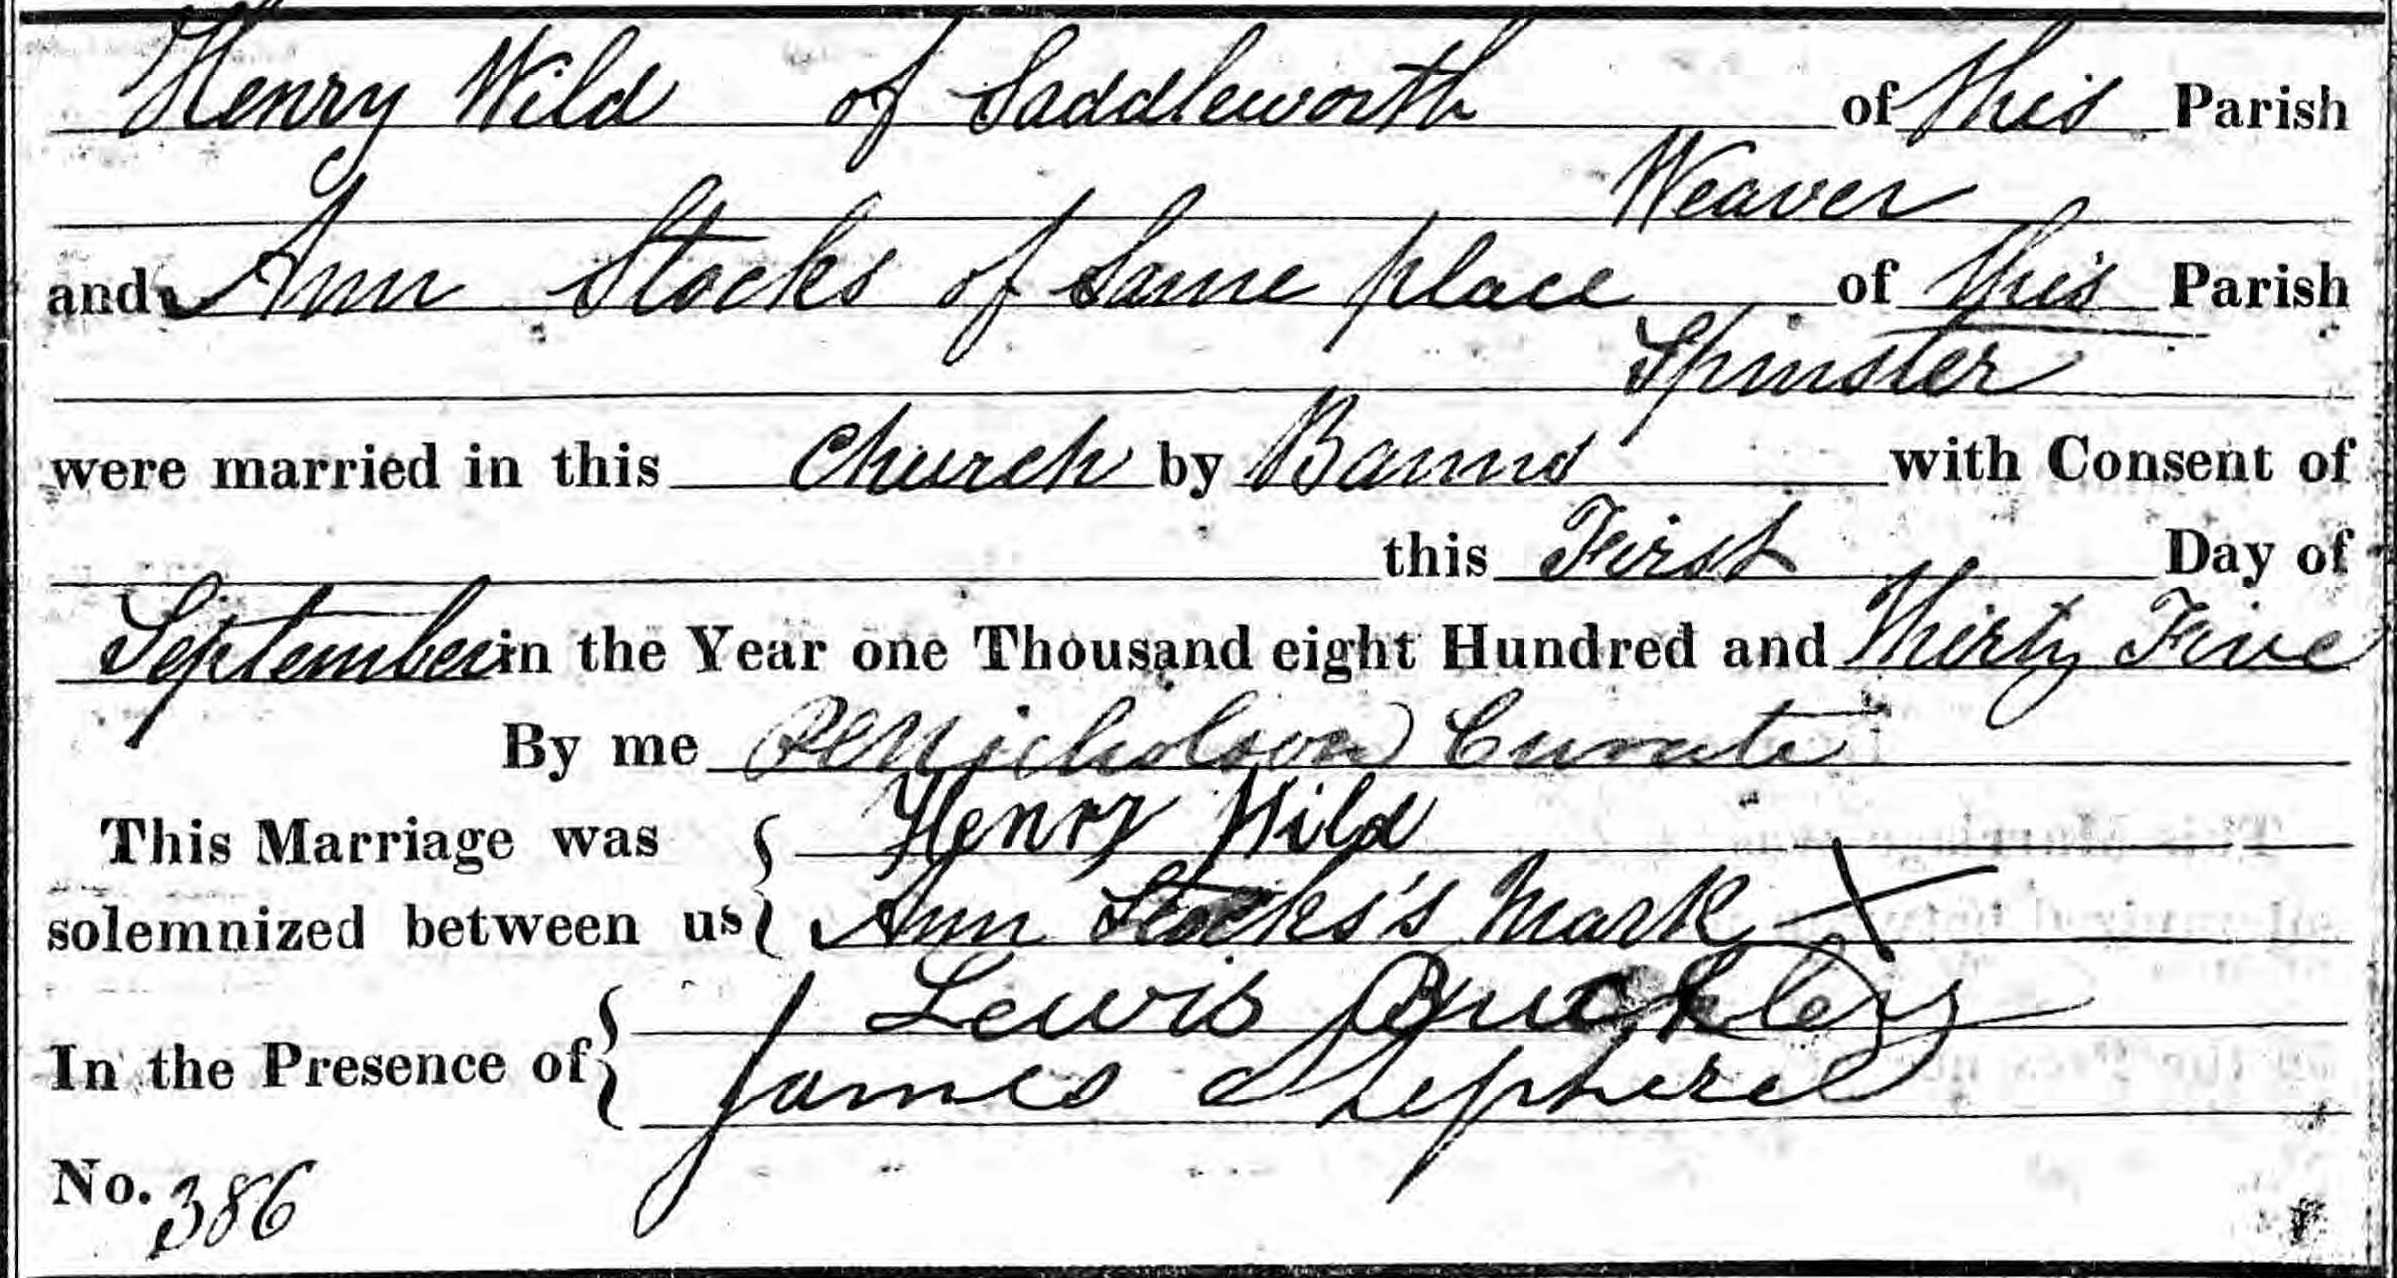 Henry Wild of Saddleworth of this Parish
Weaver
and Ann Stocks of Same place of this Parish
Spinster
were married in this Church by Banns with Consent of
this First Day of
September in the Year one Thousand eight Hundred and Thirty Five
By me Nicholson Curate
This Marriage was Henry Wild
solemnized between us Ann Stocks's Mark X
Lewis Buckley
In the Presence of
James Shepherd
No. 386